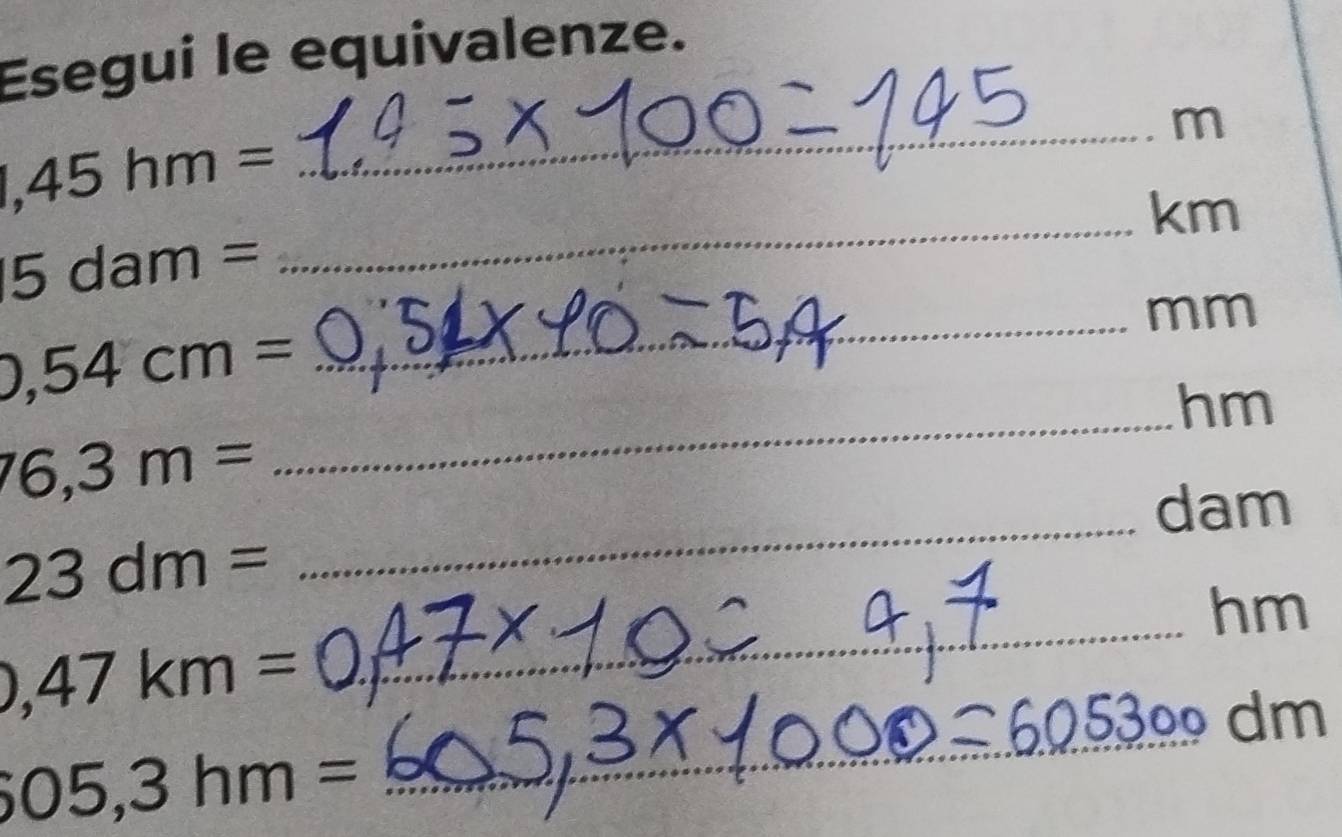 Esegui le equivalenze.
1,45 hm = 1,45 x 100 = 145 m
15 dam = km
0,54 cm = 0,54 x 10 = 5,4 mm
76,3 m = hm
23 dm = dam
0,47 km = 0,47 x 10 = 4,7 hm
605,3 hm = 605,3 x 1000 = 605300 dm